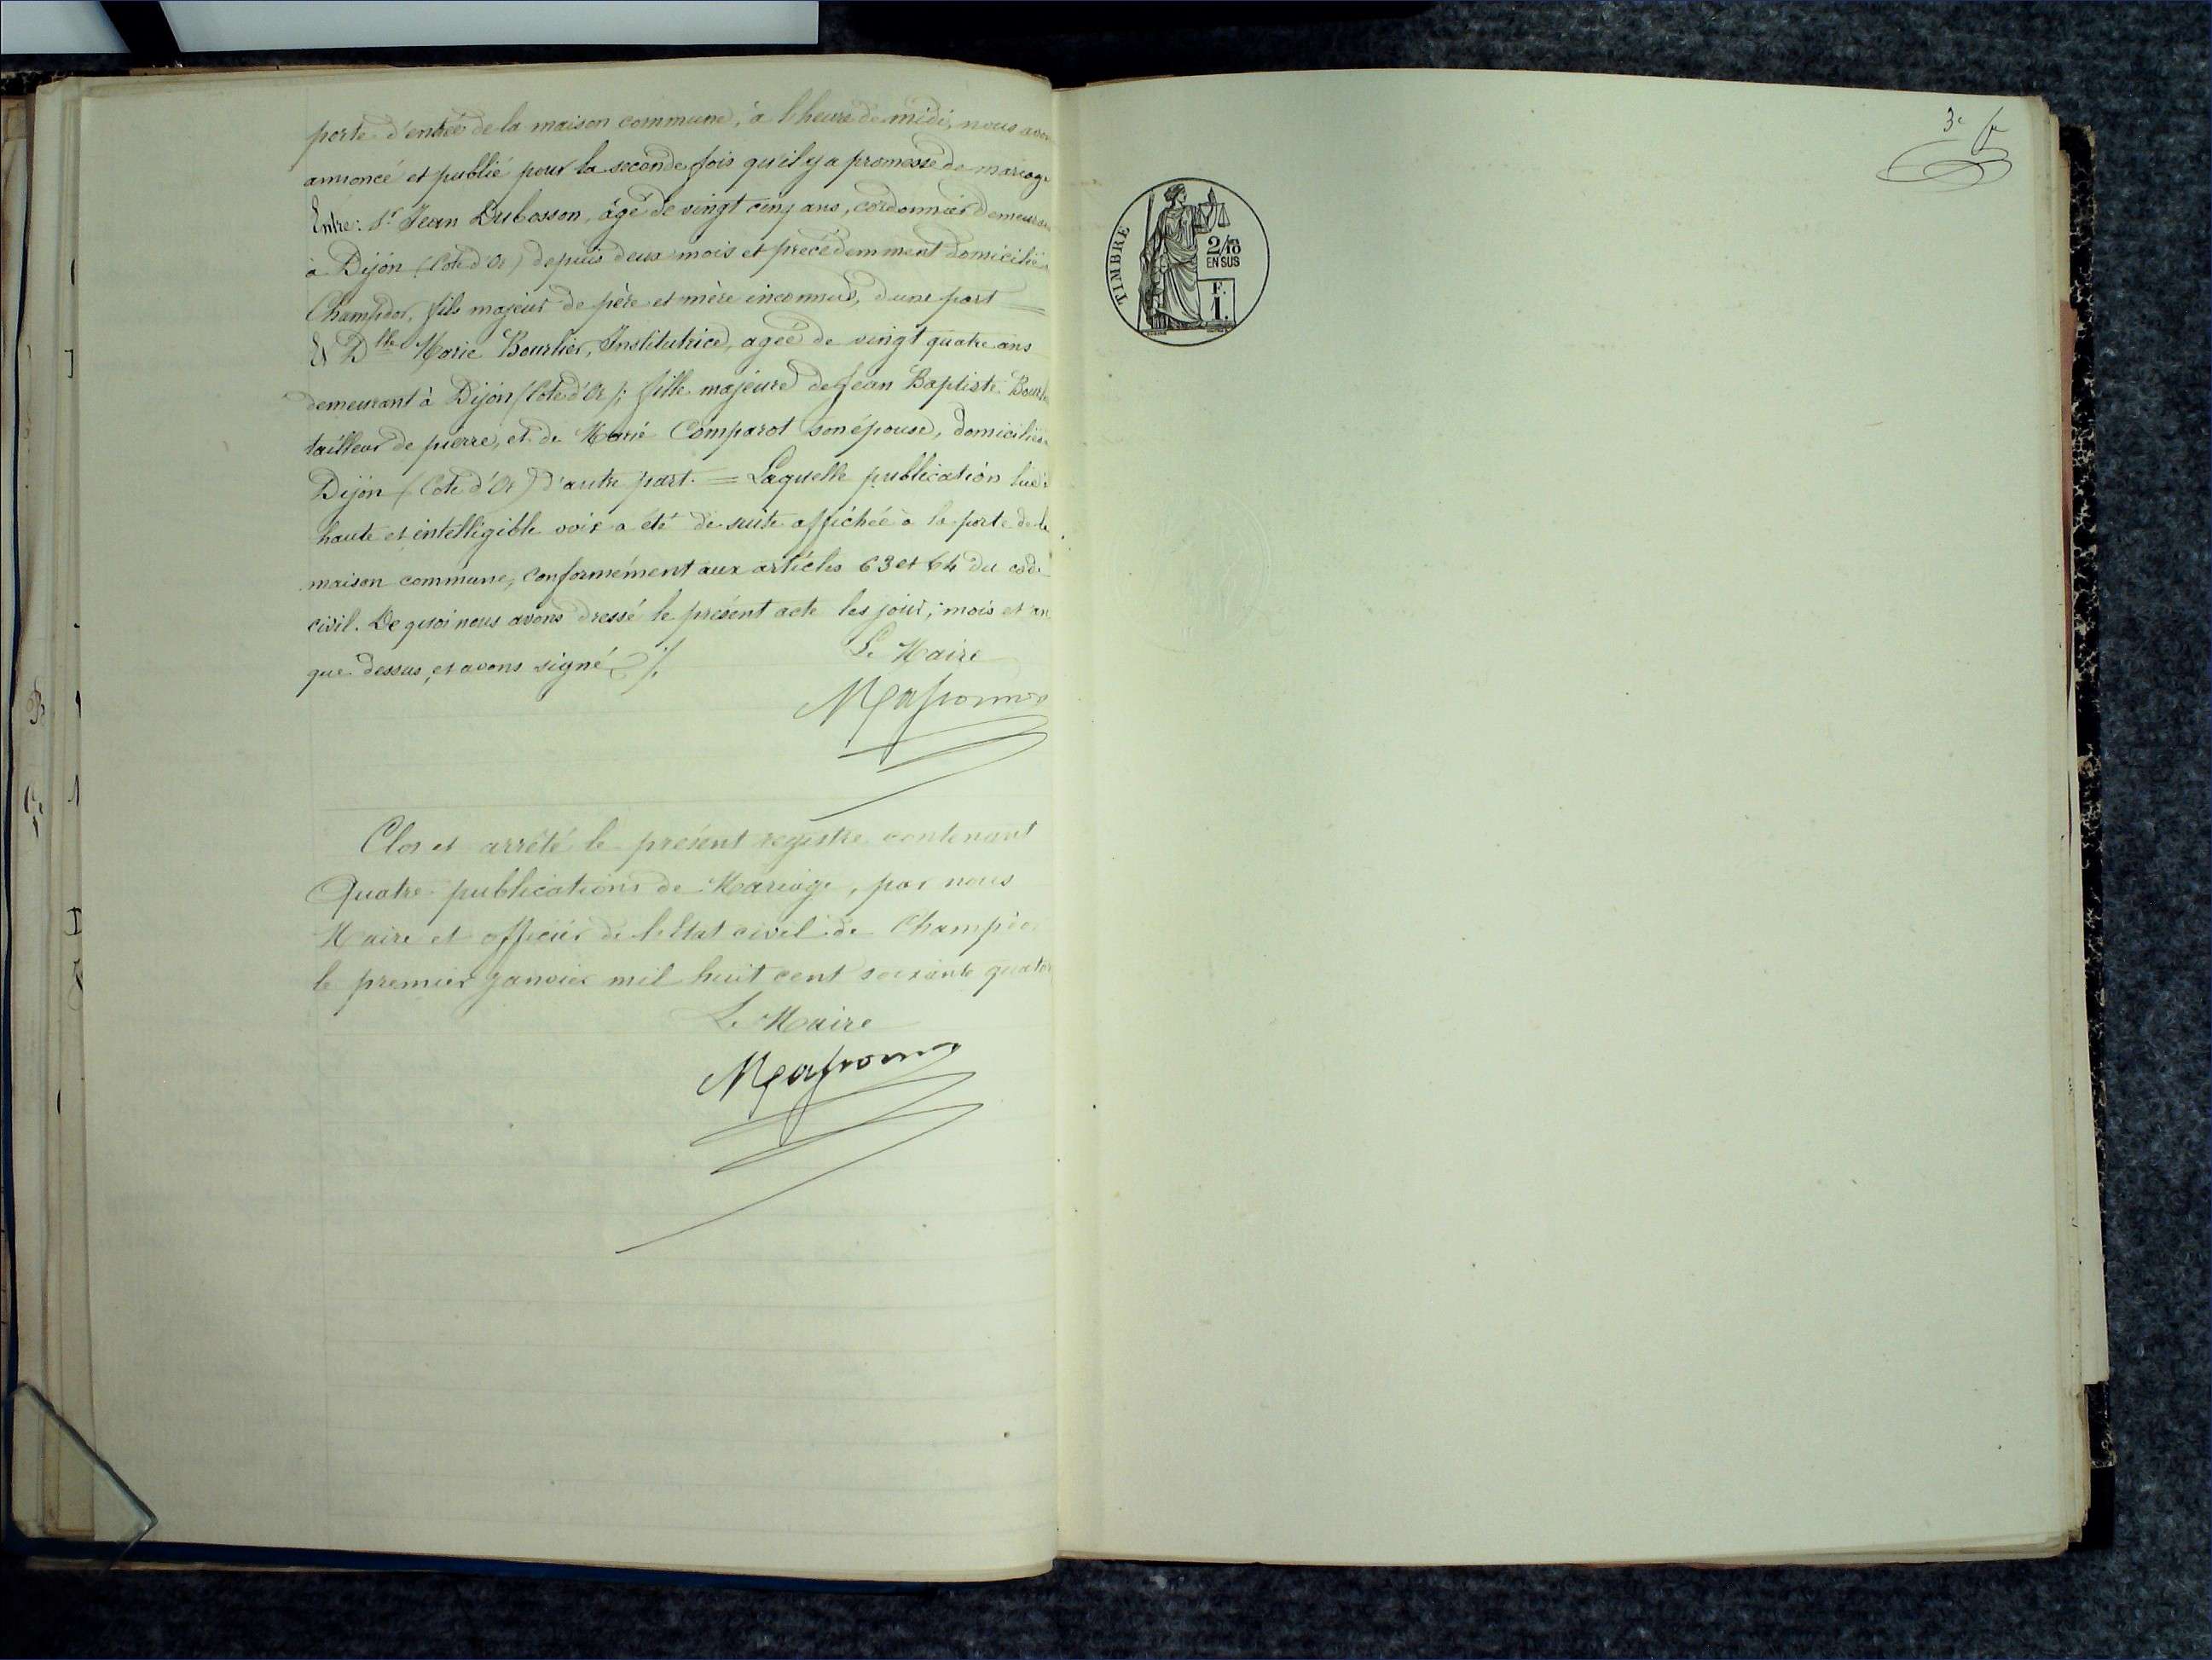 porte d'entrée de la maison commune, à l'heure de midi, nous avon
annoncé et publié pour la seconde fois qu'il y a promesse de mariage
Entre: Sr Jean Dubosson, âgé de vingt cinq ans, cordonnier demeuran
à Dijon (Cote d'Or) depuis deux mois et précédemment domicilié
Champdor, fils majeur de père et mère inconnus, d'une part =
Et Dlle Marie Bourlier, Institutrice, agée de vingt quatre ans
demeurant à Dijon (Cote d'Or); fille majeure de Jean Baptiste
tailleur de pierre, et de Marie Comparot son épouse, domiciliés
Dijon (Cote d'Or) d'autre part. = Laquelle publication lue
haute et intelligible voix a été de suite affichée à la porte de la
maison commune, conformément aux articles 63 et 64 du code
civil. De quoi nous avons dressé le présent acte les jour, mois et an
que dessus, et avons signé ./.
Le Maire
Clos et arrêté le présent registre contenant
Quatre publications de Mariage, par nous
Maire et officier de l'état civil de Champdor
le premier janvier mil huit cent soixante quator
Le Maire
3e
TIMBRE
2/10
EN SUS
F.
1.